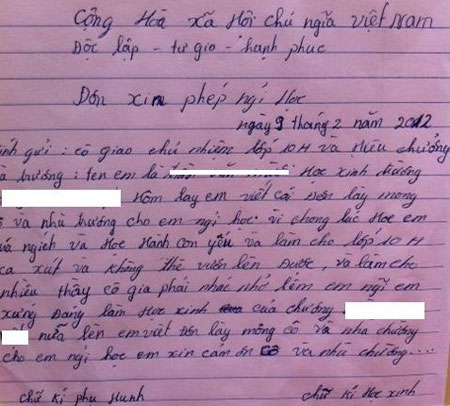 Công Hòa xã Hôi chủ ngĩa việt Nam
Độc lập - tự gio - hạnh phuc
Đơn xin phép ngỉ Học
ngày 9 tháng 2 năm 2012
ính gửi : cô giao chủ nhiêm lớp 10 H và Hiêu chưởng
à trương : ten em là Học xinh đường
Hôm lay em viết cá Đơn lây mong
ô và nhù trương cho em ngỉ học vì chong lúc Học em
uá ngich và Học Hành con yếu và làm cho lớp 10 H
ca xút và không thể vươn lên Được, và làm cho
nhiều thầy cô gia phải nhac nhở lêm em ngĩ em
xưng Đang làm Học xinh của chường
nữa lên em viết đơn lây mông cô và nha chường
cho em ngỉ học em xin cảm ơn Cô và nhù chường....
chữ kí phu Hunh
chữ kí Học xinh